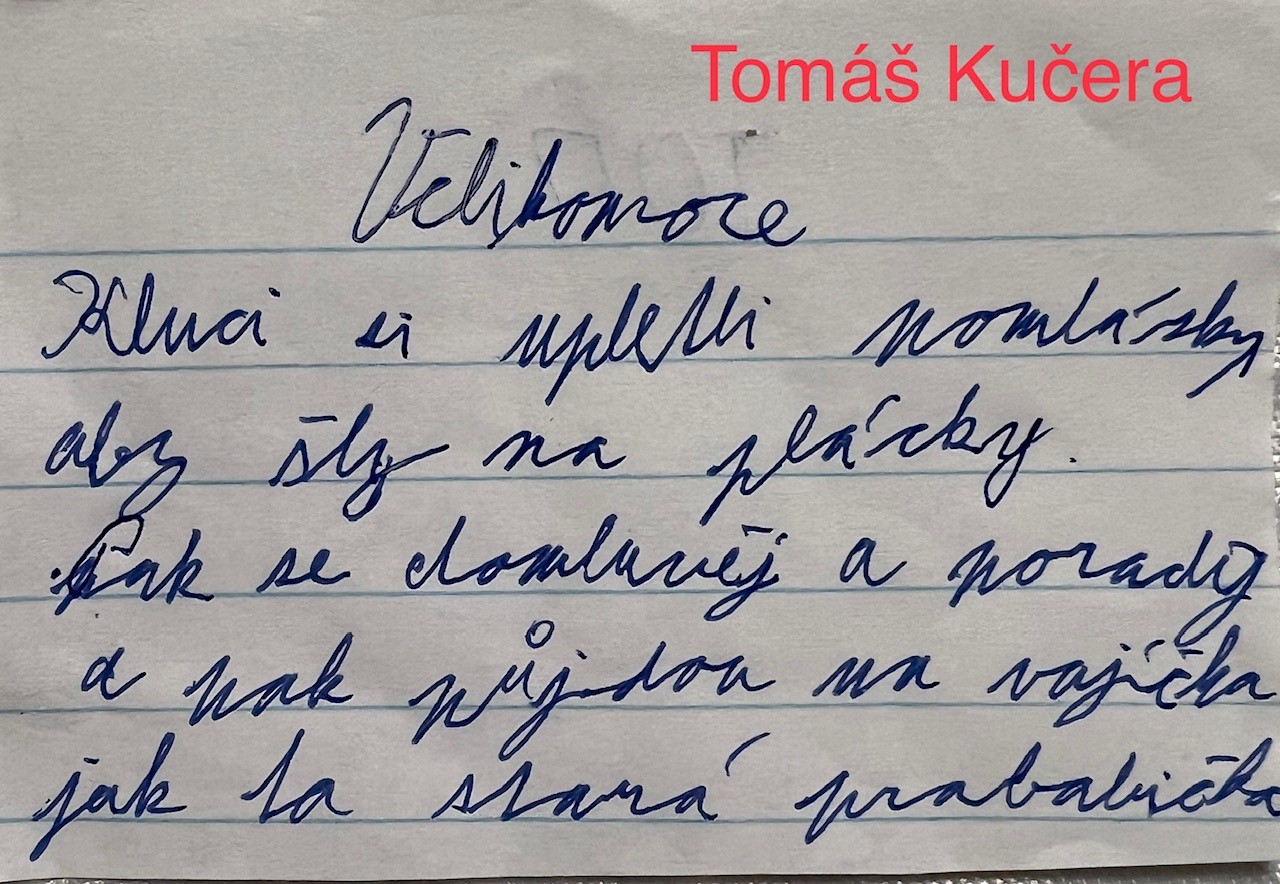 Tomáš Kučera
Velikonoce
Kluci si upletli pomlásky
aby šly na plácky.
Pak se domluvěj a poradij
a pak půjdou na vajíčka
jak ta stará prababička